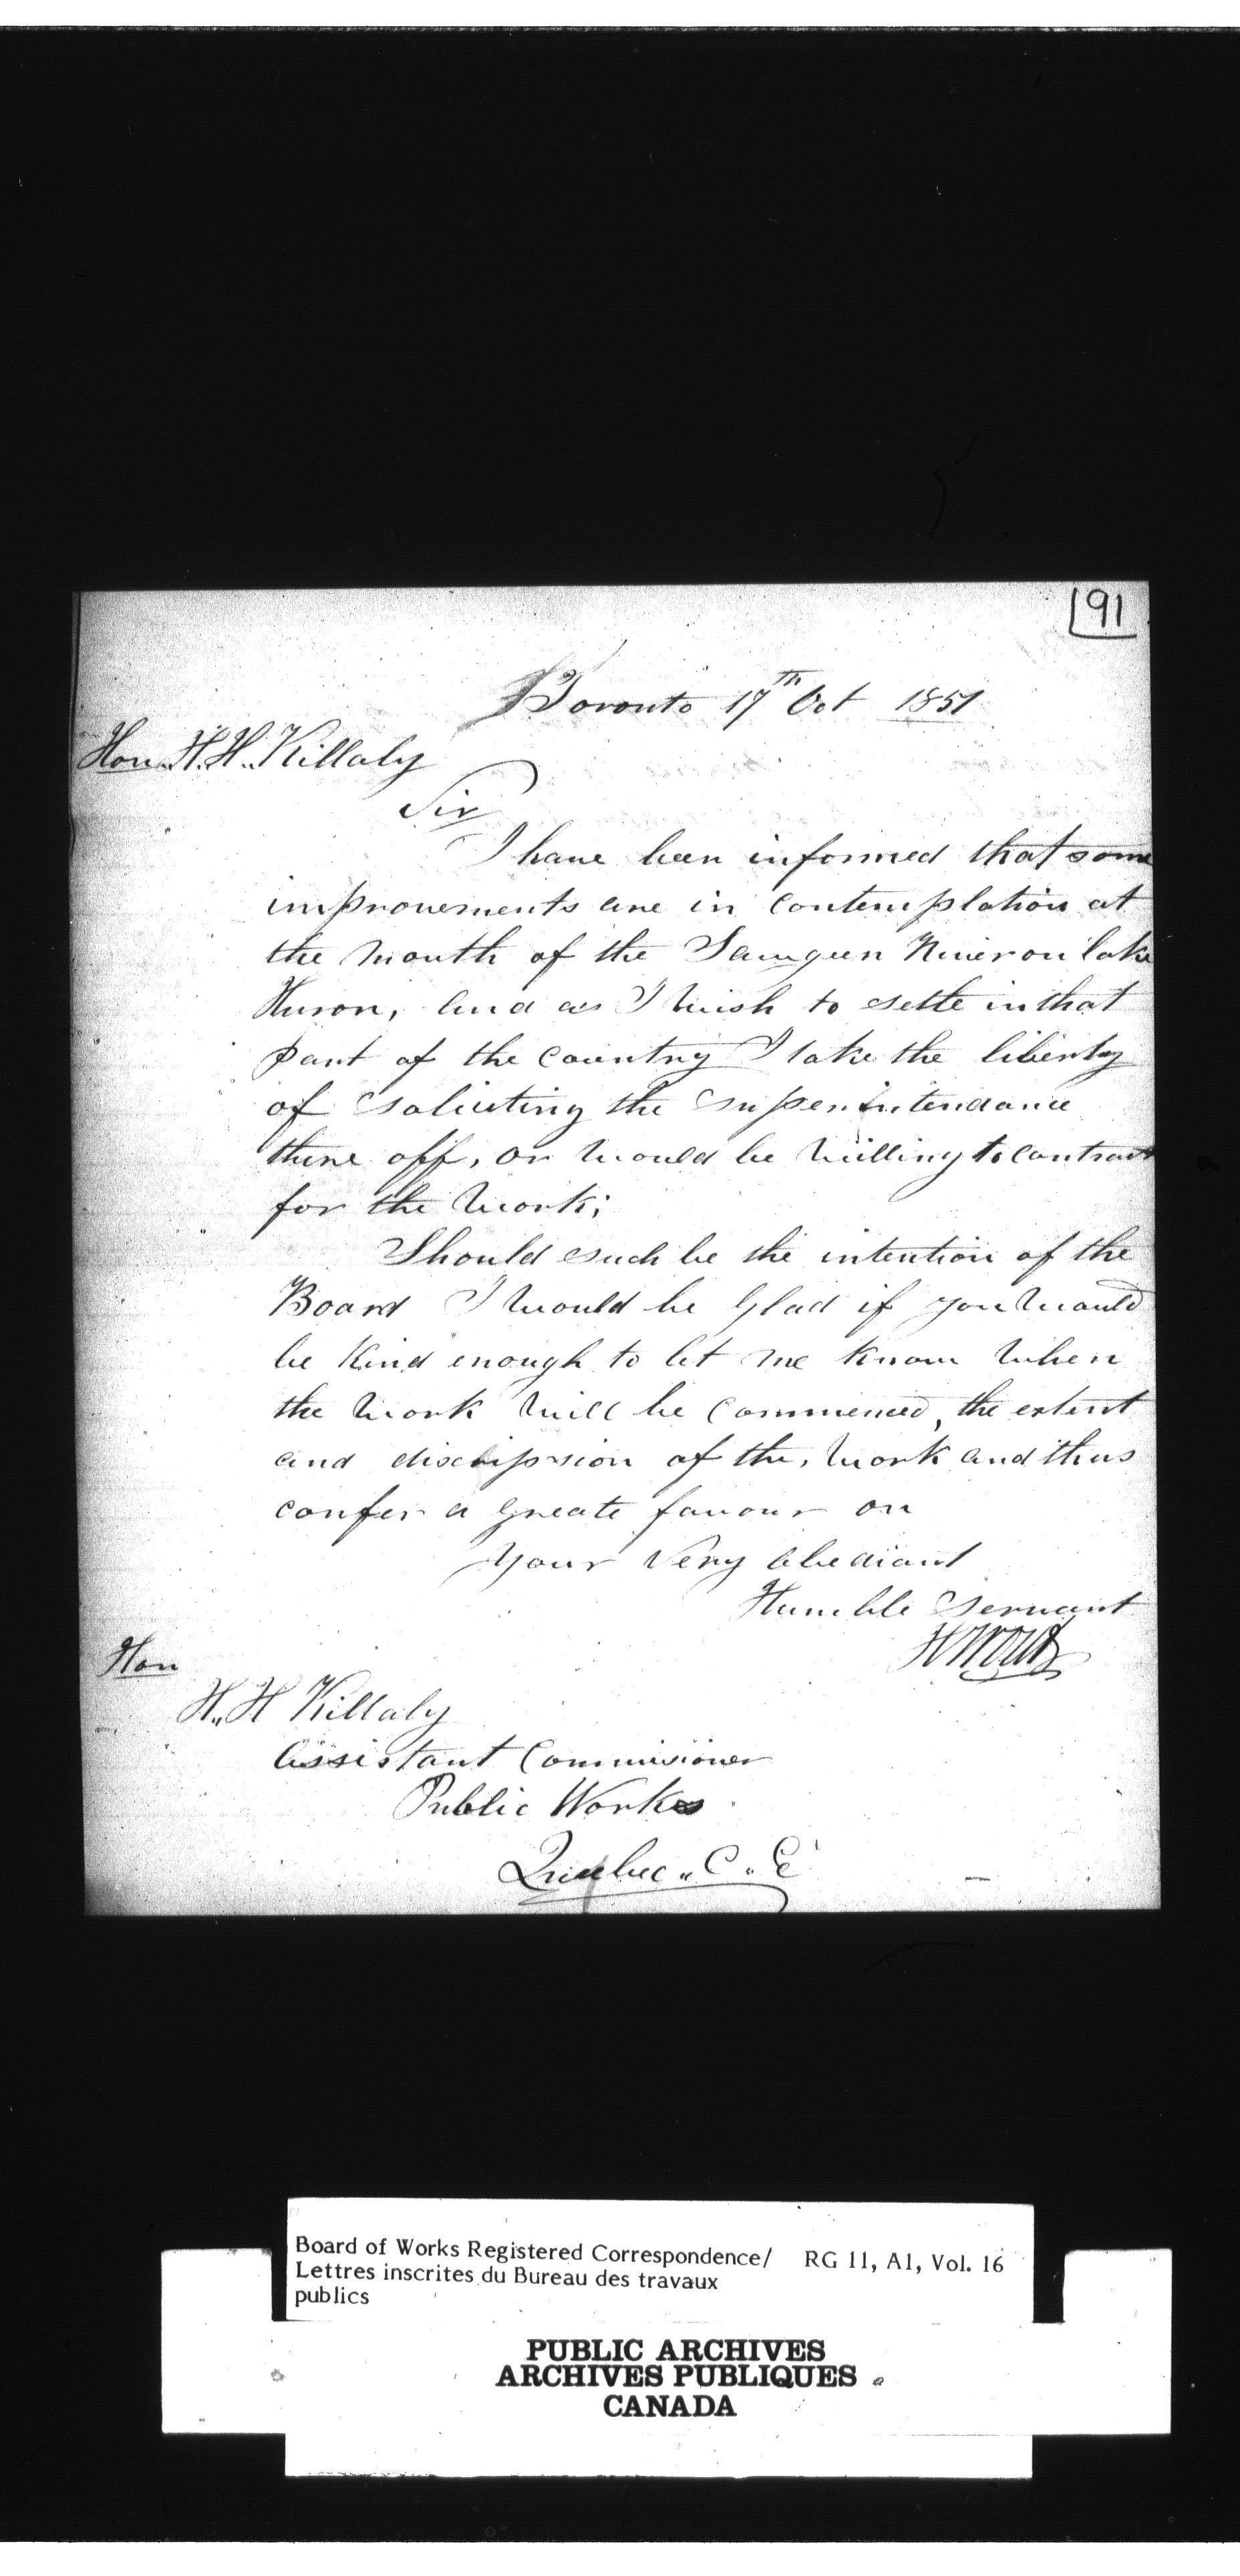 91
Toronto 17th Oct 1851
Hon. H.H. Killaly
Sir
I have been informed that some
improvements are in Contemplation at
the Mouth of the Saugeen River on lake
Huron, and as I wish to settle in that
part of the Country I take the liberty
of Soliciting the Superintendance
there off, or would be Willing to Contract
for the Work;
Should such be the intention of the
Board I Would be Glad if you Would
be Kind enough to let me Know When
the Work Will be Commenced, the extent
and discripsion of the, Work and thus
confer a Greate favour on
Your Very Obediant
Humble Servant
Hon
H.. H Killaly
Assistant Commissioner
Public Works
Quebec " C " E
Board of Works Registered Correspondence/ RG 11, A1, Vol. 16
Lettres inscrites du Bureau des travaux
publics
PUBLIC ARCHIVES
ARCHIVES PUBLIQUES
CANADA